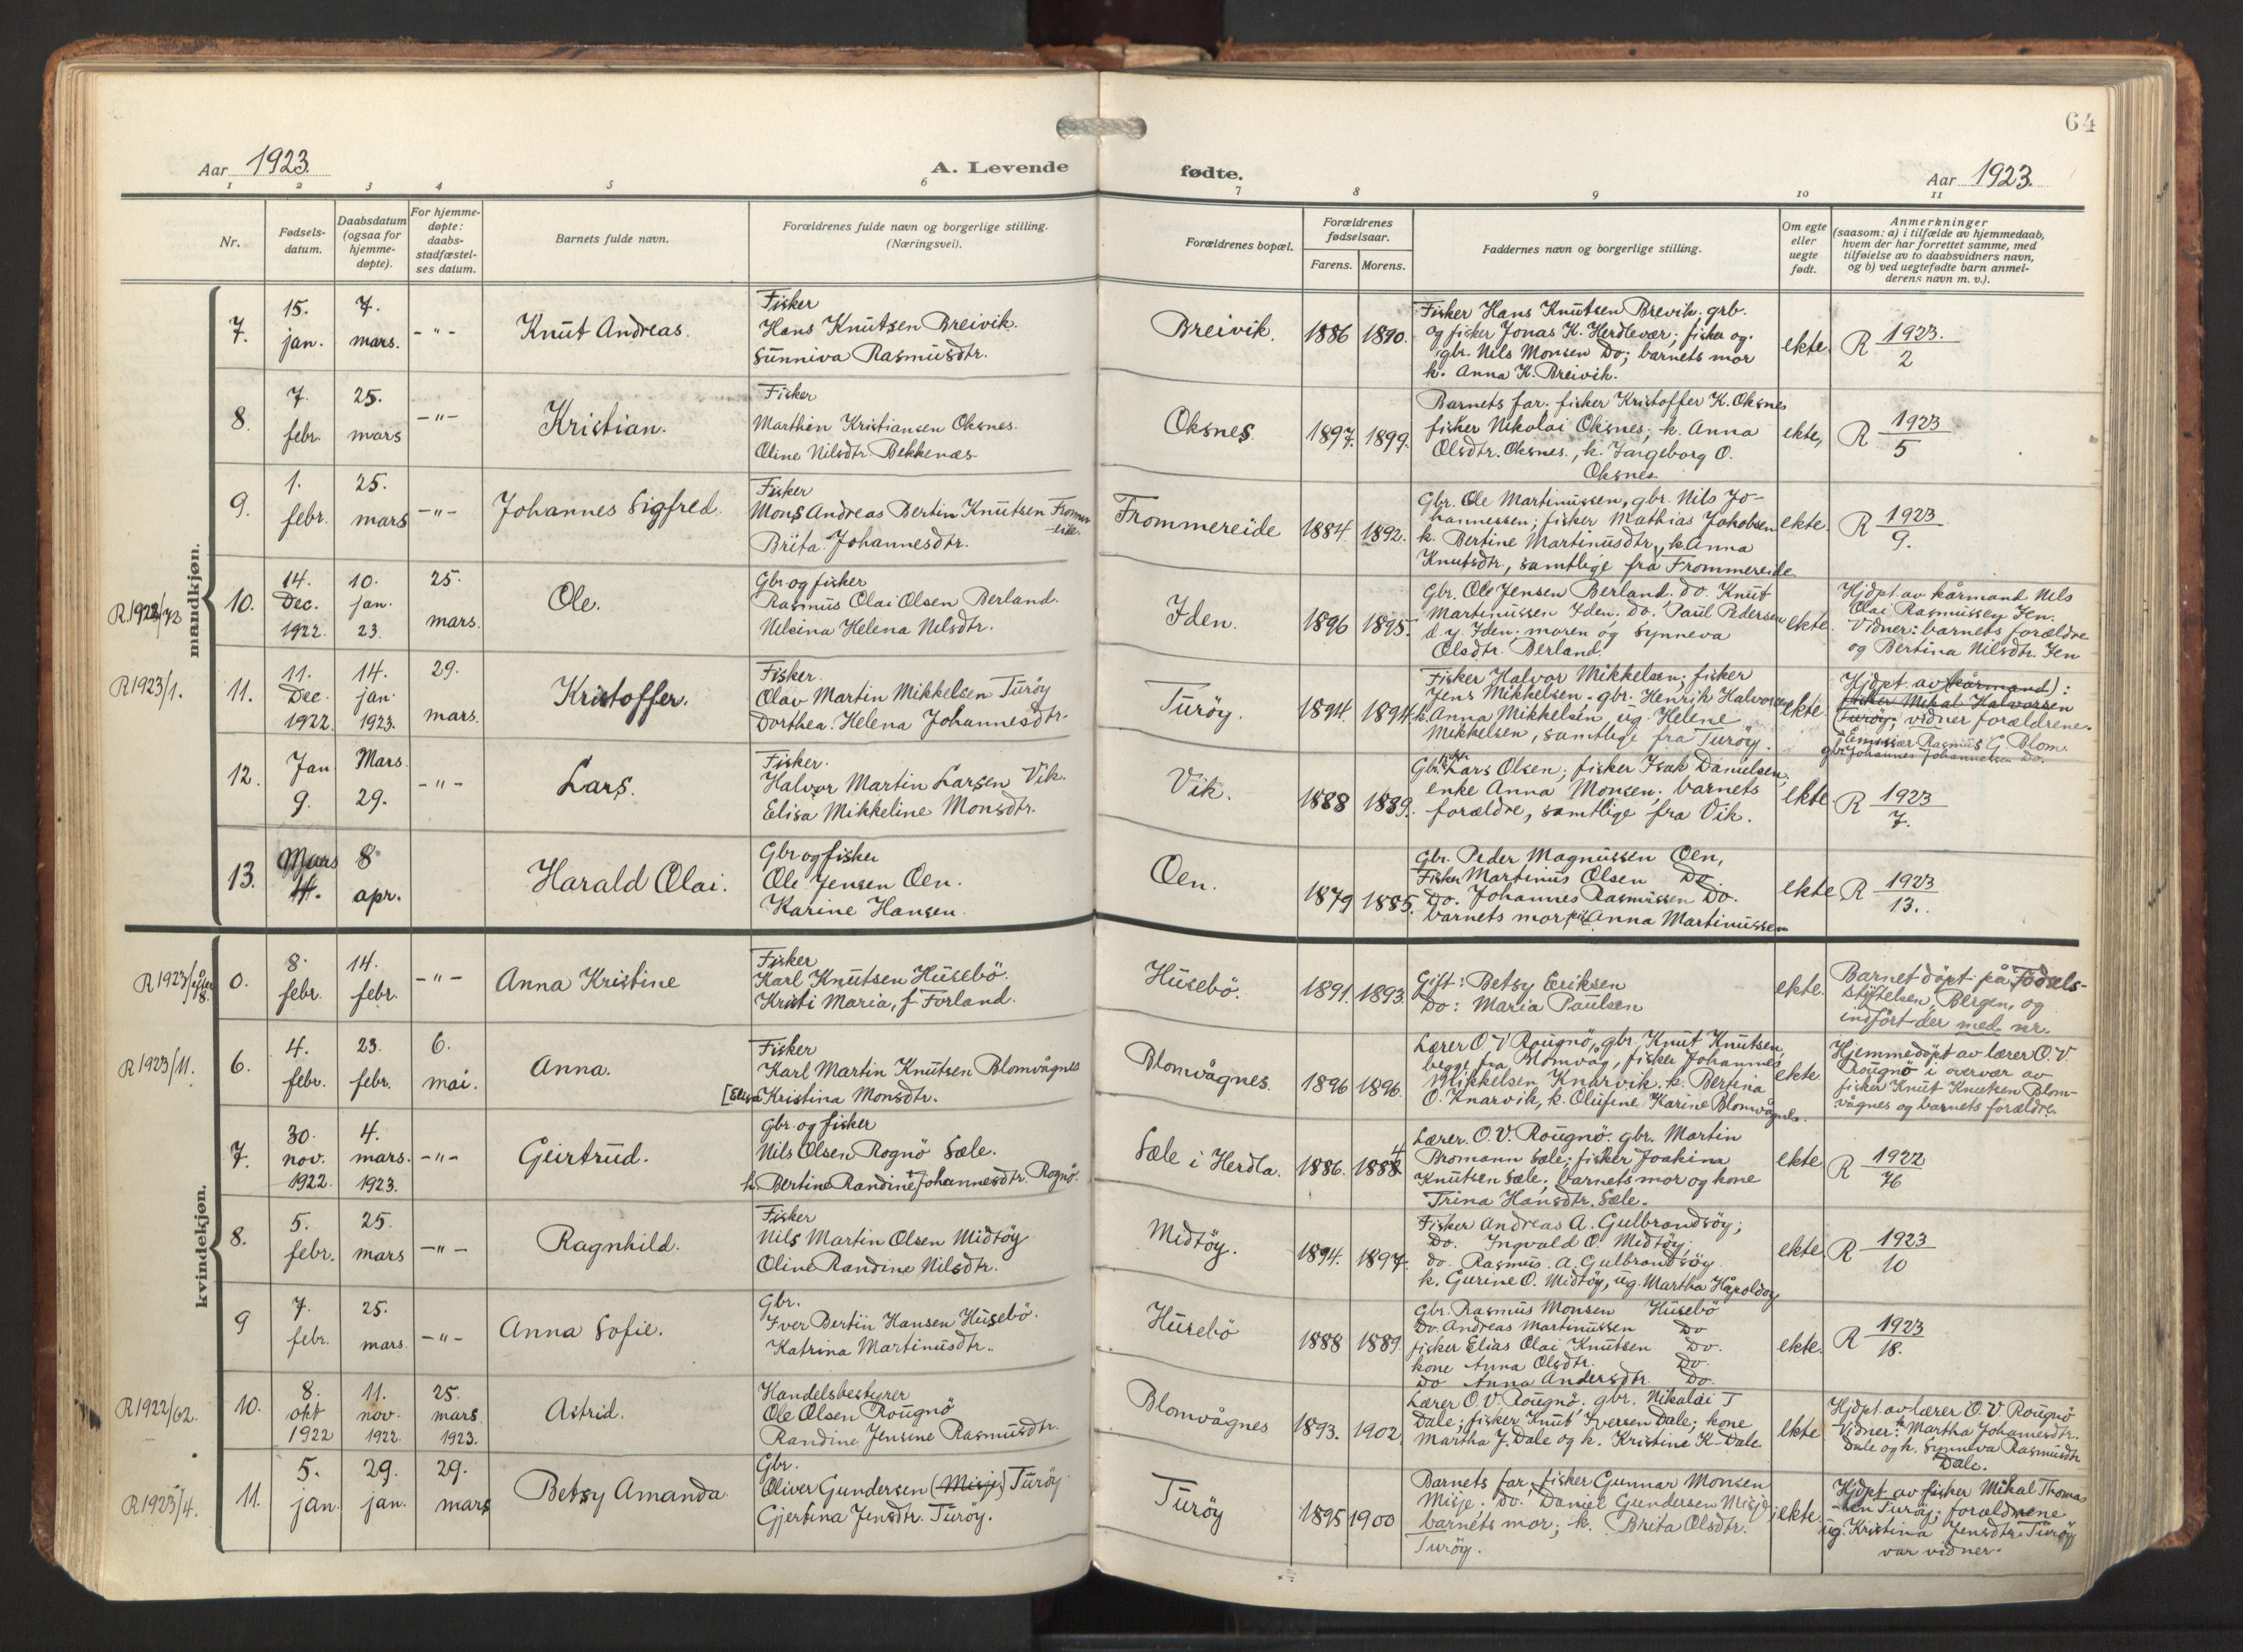 64
Aar 1923.
A. Levende fødte.
Aar 1923.
1 2 3 4 5 6 7 8 9 10 11
Nr.
Fødsels-
datum.
Daabsdatum
(ogsaa for
hjemme-
døpte).
For hjemme-
døpte:
daabs-
stadfæstel-
ses datum.
Barnets fulde navn.
Forældrenes fulde navn og borgerlige stilling.
(Næringsvei).
Forældrenes bopæl.
Forældrenes
fødselsaar.
Farens. Morens.
Faddernes navn og borgerlige stilling.
Om egte
eller
uegte
født.
Anmerkninger
(saasom: a) i tilfælde av hjemmedaab,
hvem der har forrettet samme, med
tilføielse av to daabsvidners navn,
og b) ved uegtefødte barn anmel-
derens navn m. v.).
mandkjøn.
7.
15.
jan.
7.
mars.
-"-
Knut Andreas.
Fisker
Hans Knutsen Breivik.
Sunniva Rasmusdtr.
Breivik.
1886 1890.
Fisker Hans Knutsen Brevik; grb.
og fisker Jonas K. Herdlevær; fisker og.
gbr. Nils Monsen Do; barnets mor
k. Anna K. Breivik.
ekte.
R 1923.
2
8.
7.
febr.
25.
mars
-"-
Kristian.
Fisker
Marthin Kristiansen Oksnes.
Oline Nilsdtr. Bekkenæs.
Oksnes.
1897. 1899.
Barnets far. fisker Kristoffer K. Oksnes
fisker Nikolai Oksnes; k. Anna
Olsdtr. Oksnes., k. Ingeborg O.
Oksnes.
ekte,
R 1923
5
9.
1.
febr.
25.
mars
-"-
Johannes Sigfred.
Fisker
Mons Andreas Bertin Knutsen Frommer
-eide.
Brita Johannesdtr.
Frommereide
1884. 1892.
Gbr. Ole Martinussen, gbr. Nils Jo-
hannessen; fisker Mathias Jakobsen
k. Bertine Martinusdtr, k. Anna
Knutsdtr, samtlige fra Frommereide
ekte.
R 1923
9.
R 1922/72
10.
14.
Dec.
1922.
10.
jan.
23.
25.
mars.
Ole.
Gbr. og fisker
Rasmus Olai Olsen Berland.
Nilsina Helena Nilsdtr.
Iden.
1896 1895.
Gbr. Ole Jensen Berland. do. Knut
Martinussen Iden; do. Paul Pedersen
d.y. Iden. moren og Synneva
Olsdtr. Berland.
ekte.
Hjdpt. av kårmand Nils
Olai Rasmussen Jen.
Vidner: barnets forældre
og Bertina Nilsdtr. Jen
R 1923/1.
11.
11.
Dec.
1922.
14.
jan.
1923.
29.
mars.
Kristoffer.
Fisker.
Olav Martin Mikkelsen Turøy
Dorthea Helena Johannesdtr.
Turøy.
1894. 1894.
Fisker Halvor Mikkelsen; fisker
Jens Mikkelsen. gbr. Henrik Halvorsen
k. Anna Mikkelsen, ug. Helene
Mikkelsen, samtlige fra Turøy.
ekte.
Hjdpt. av (kårmand):
fisker Mikal Halvorsen
Turøy; vidner forældrene.
Emissær Rasmus G Blom.
gbr Johannes Johannessen Do.
12.
Jan
9.
Mars
29.
-"-
Lars.
Fisker.
Halvor Martin Larsen Vik.
Elisa Mikkeline Monsdtr.
Vik.
1888 1889.
Gbr. Lars Olsen; fisker Isak Danielsen,
enke Anna Monsen; barnets
forældre, samtlige fra Vik.
ekte
R 1923
7.
13.
Mars
4.
8
apr.
Harald Olai.
Gbr og fisker
Ole Jensen Oen.
Karine Hansen.
Oen.
1879 1885.
Gbr. Peder Magnussen Oen,
Fisker Martinus Olsen Do.
Do. Johannes Rasmussen Do.
barnets mor, Anna Martinussen
ekte
R 1923
13.
kvindekjøn.
0.
8.
febr.
14.
febr.
-"-
Anna Kristine
Fisker
Karl Knutsen Husebö.
Kristi Maria, f. Forland.
Husebö.
1891. 1893.
Gift: Betsy Eriksen
Do: Maria Paulsen
ekte.
Barnet döpt på Födsels-
stiftelsen, Bergen, og
indført der med nr.
R 1923/11.
6.
4.
febr.
23.
febr.
6.
mai.
Anna.
Fisker
Karl Martin Knutsen Blomvågnes
[Elisa Kristina Monsdtr.
Blomvågnes.
1896 1896.
Lærer O V Rougnö, gbr. Knut Knutsen,
begge fra Blomvåg, fisker Johannes
Mikkelsen Knarvik. k. Bertina
O. Knarvik, k. Olufine Karine Blomvågnes.
ekte.
Hjemmedöpt av lærer O.V.
Rougnö i overvær av
fisker Knut Knutsen Blom-
vågnes og barnets forældre.
7.
30.
nov.
1922.
4.
mars.
1923.
-"-
Geirtrud.
Gbr. og fisker
Nils Olsen Rognö Sæle.
k. Bertine Randine Johannesdtr. Rognö.
Sæle i Herdla.
1886. 1884
Lærer. O.V. Rougnö. gbr. Martin
Bromann Sæle; fisker Joakim
Knutsen Sæle; barnets mor og kone
Trina Hansdtr. Sæle.
ekte
R 1922
76
8.
5.
febr.
25.
mars
-"-
Ragnhild.
Fisker
Nils Martin Olsen Midtöy
Oline Randine Nilsdtr.
Midtöy.
1894. 1897.
Fisker Andreas A. Gulbrandsöy;
Do. Ingvald O. Midtöy;
do. Rasmus. A. Gulbrandsöy
k. Gurine O. Midtöy, ug. Martha Håpoldöy
ekte.
R 1923
10
9
7.
febr.
25.
mars.
-"-
Anna Sofie.
Gbr.
Iver Bertin Hansen Husebö.
Katrina Martinusdtr.
Husebö
1888 1889.
Gbr. Rasmus Monsen Husebö
Do. Andreas Martinussen Do
fisker Elias Olai Knutsen Do.
kone Anna Olsdtr. Do.
Do Anna Andersdtr Do.
ekte.
R 1923
18.
R 1922/62.
10.
8.
okt
1922
11.
nov.
1922.
25.
mars.
1923.
Astrid.
Handelsbestyrer
Ole Olsen Rougnö
Randine Jensine Rasmusdtr.
Blomvågnes
1893. 1902.
Lærer O.V. Rougnö. gbr. Nikolai T
Dale; fisker Knut Iversen Dale; kone
Martha J. Dale og k. Kristine K. Dale
ekte
Hjdpt. av lærer O. V. Rougnö
Vidner: k. Martha Johannesdtr.
Dale og k. Synneva Rasmusdtr
Dale.
R 1923/4.
11.
5.
jan.
29.
jan.
29.
mars
Betsy Amanda.
Gbr.
Oliver Gundersen (Misje) Turöy.
Gjertina Jensdtr. Turöy.
Turöy
1895 1900
Barnets far fisker Gunnar Monsen
Misje. do. Daniel Gundersen Misje;
barnets mor; k. Brita Olsdtr.
Turöy.
ekte.
Hjdpt av fisker Mikal Thomas
-sen Turöy; forældrene
ug. Kristina Jensdtr. Turöy
var vidner.